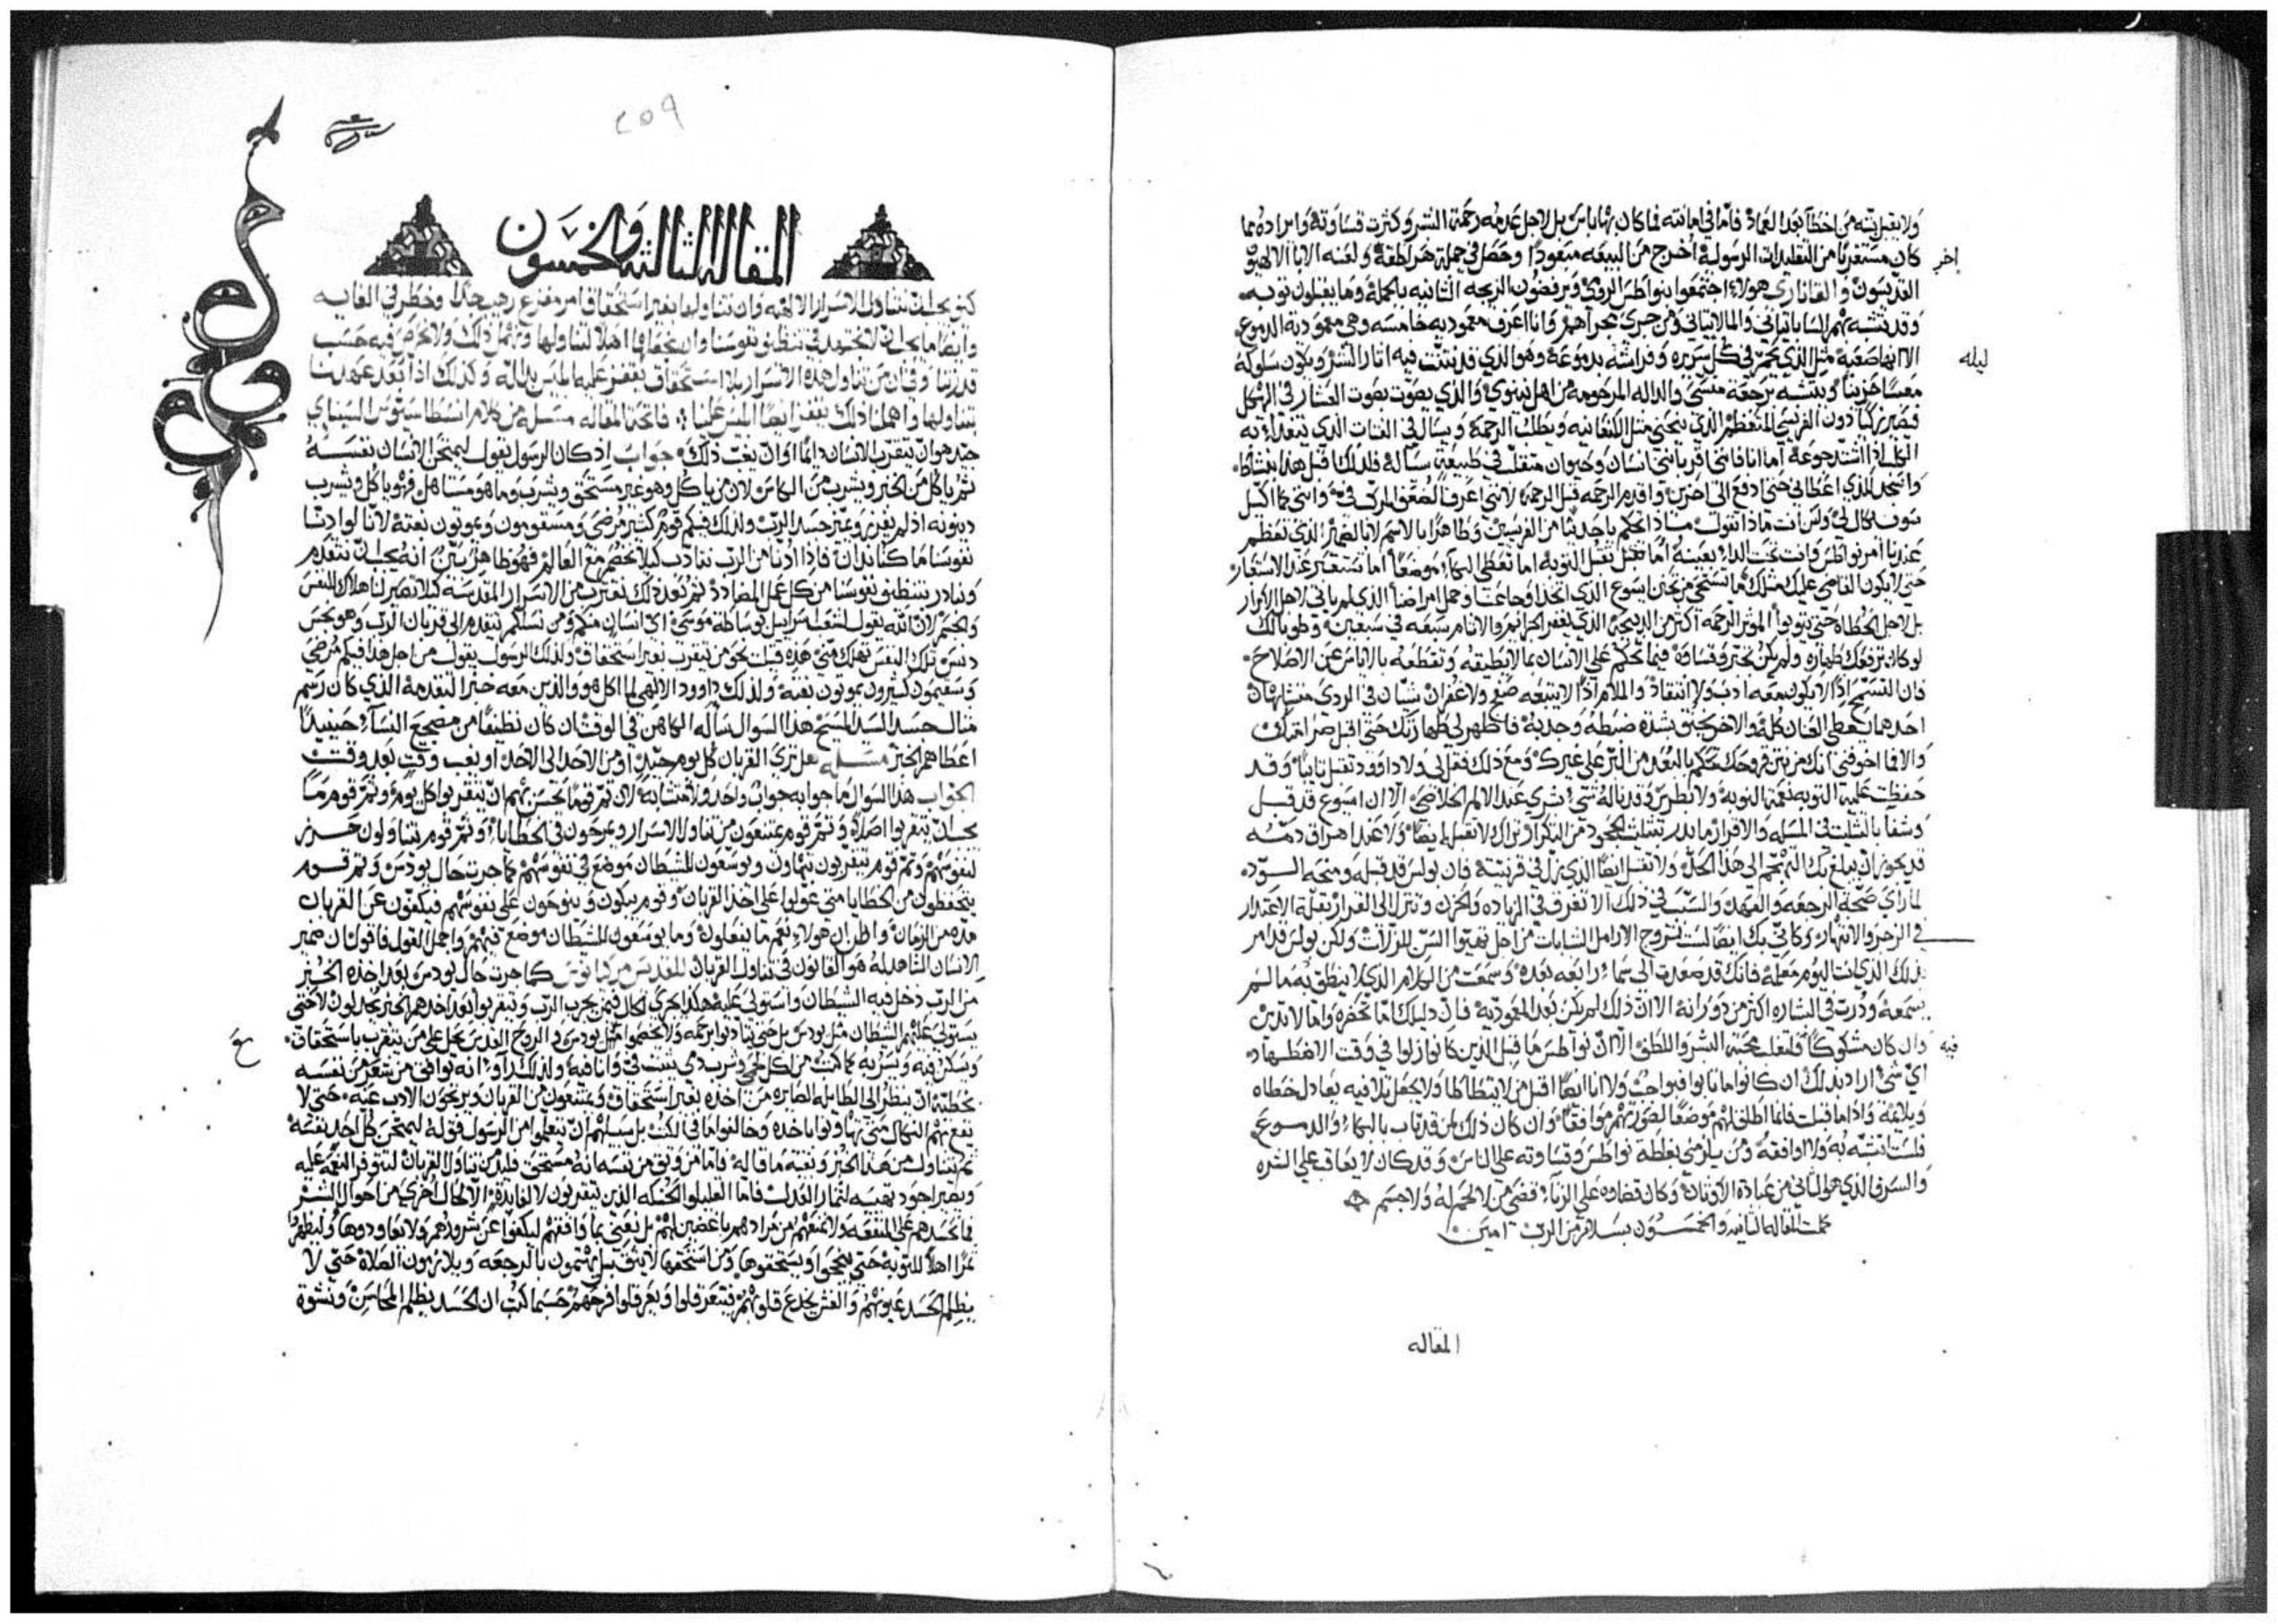 ولا يقبل تِبه من اخطا بعد العماد فامّا في امانته فما كان بها باس بل لاجل عدمه رحمة البشر وكثرت قساوته وايراده مما
اخر
كان مستغربًا من التقليدات الرسولية أُخرج من البيعه مبعودًا وحصل في جملة هراطقة ولعنه الابا الالهيون
القديسون والقاثاري هولاء اجتمعوا بنواطس الروي ويرفضون الزيجه الثانيه بالجملة وما يقبلون توبه
وقد تشبه بهم الساباتياني والمالاتياني ومن جري مجراهم وانا اعرف معموديه خامسه وهي معمودية الدموع
ليله
الا انها صعبة مثل الذي يحمّ في كل سريره وفراشه بدموعة وهو الذي قد نتنت فيه اثار الشر ويكون سلوكه
معبسًا حزينًا ويتشبه برجعة منسي والداله المرحومه من اهل نينوي والذي يصوّت بصوت العشار في الهيكل
فيصير زكيًا دون الفريسي المتعظم الذي ينحني مثل الكنعانيه ويطلب الرحمة ويسال في الفتات الذي يتغدا به
الكلب اذا اشتد جوعه اما انا فانني اقر بانني انسان وحيوان متقلب في طبيعة سيالة فلذلك اقبل هذا بنشاط
واسجد للذي اعطاني حتي ادفع الي اخرين واقدم الرحمه قبل الرحمة لانني اعرف الضعف المركب فيّ وانني بما اكيل
سوف يكال لي ولكن انت ماذا تقول ماذا تحكم يا جديدًا من الفريسين وطاهرًا بالاسم لا بالضمير الذي تعظم
عندنا امر نواطس وانت تحت الدا بعينه اما تقبل التوبه اما تعطي البكاء موضعًا اما تستعبر عند الاستعبار
حتي لا يكون القاضي عليك مثلك اما تستحي من تحنن ايسوع الذي اتخذ اوجاعنا وحمل امراضنا الذي لم يات لاجل الابرار
بل لاجل الخطاه حتي يتوبوا الموثر الرحمه اكثر من الذبيحة الذي يغفر الجرايم والاثام سبعه في سبعين وطوباك
لو كان ترفعك طهاره ولم يكن تحتم وقساوه فيما تحكم علي الانسان بما لا يطيقه وتقطعه بالاياس عن الاصلاح
فان التسمح اذا لا يكون معه ادب ولا انتقاد والملام اذا لا يتبعه صفح ولا غفران سيان في الردي متشابهان
احدهما يعطي العنان كله والاخر يخنق بشده ضبطه وجذبه فاظهر لي طهارتك حتي اقبل صرامتك
والا فما اخوفني انك من نتن قروحك تحكم بالبعد من البر علي غيرك ومع ذلك فقل لي ولا داوود تقبل تايبًا وقد
حفظت عليه التوبه نعمة النبوه ولا بطرس وقد ناله شي بشري عند الالم الخلاصي الا ان ايسوع قد قبله
قد يجوز ان يبلغ بك التهجم الي هذا الحد ولا تقبل ايضًا الذي زل في قرنتيه فان بولس قد قبله ومنحه السوّد
لما راي صحة الرجعه والعهد والسبب في ذلك الا تغرق في الزياده والحزن
في الزجر والانتهار وكاني بك ايضًا لست تزوج الارامل الشابات من اجل تهيوا السن للزلات ولكن بولس قد امر
بذلك الذي انت اليوم معلمه فانك قد صعدت الي سماء رابعه بعده وسمعت من الكلام الذي لا ينطق به ما لم
يسمعه ودرت في البشاره اكثر من دورانه الا ان ذلك لم يكن بعد المعمودية
فيه
وان كان مشكوكًا فلتغلب محبة البشر واللطف الا ان نواطس ما قبل الذين كانوا زلوا في وقت الاضطهاد
اي شي اراد بذلك ان كانوا ما تابوا فبواجب ولا انا ايضًا اقبل من لا يتطاطا ولا يجعل تلافيه يعادل خطاه
وبلايمه واذا ما قبلت فانما اطلق لهم موضعًا لصورتهم موافقًا وان كان ذلك لمن قد تاب بالبكاء والدموع
فلست اتشبه به ولا اوافقه ومن يلزمني بغلطة نواطس وقساوته علي الناس وقد كان لا يعاقب علي الشره
والسرف الذي هو الثاني من عبادة الاوثان وكان قصاده علي الزناء فصي من لا لحم له ولا جسم
كملت المقاله الثانيه والخمسون بسلام من الرب امين
المقاله
٢٥٩
المقالة الثالثة والخمسون
كيف يجب ان نتناول الاسرار الالهيه وان تناولها بغير استحقاق امر مفزع رهيب جدًا وخطر في الغايه
وايضًا ما يجب ان لا نجتهد في تنظيف نفوسنا وان نجعلها اهلًا لتناولها ونهمل ذلك ولا نحرص فيه حسب
قدرتنا وفي ان من تناول هذه الاسرار بلا استحقاق يقفز عليه ابليس بذاته وكذلك اذا بعد عهدنا
بتناولها واهملنا ذلك يقفز ايضًا ابليس علينا فاتحة المقاله مسله من كلام انسطاسيوس السيناي
جيد هو ان يتقرب الانسان دايمًا او ان يغب ذلك جواب اذ كان الرسول يقول ليمتحن الانسان نفسه
ثم ياكل من الخبز ويشرب من الكاس لان من ياكل وهو غير مستحق ويشرب وما هو مستاهل فهو ياكل ويشرب
دينونه اذ لم يفرز ويميز جسد الرب ولذلك فيكم قوم كثير مرضي ومسقومون ويموتون بغتة لانّا لو ادنّا
نفوسنا ما كنا ندان فاذا ادنا من الرب نتادب كيلا نخصم مع العالم فهوظا هو بيّن انه يجب ان نتقدم
ونبادر بتنظيف نفوسنا من كل عمل المضادد ثم بعد ذلك نقترب من الاسرار المقدسه كيلا تصير لنا هلاك النفس
والجسم لان الله يقول لشعب اسراييل بوساطة موسي اي انسان منكم ومن نسلكم تقدم الي قربان الرب وهو نجس
دنس تلك النفس تهلك مني هذه قيلت نحو من يتقرب بغير استحقاق ولذلك الرسول يقول من اجل هذا فيكم مرضي
وسقيمون كثيرون يموتون بغتة ولذلك داوود الالهي لما اكل هو والذين معه خبز التقدمة الذي كان رسم
مثال جسد السيد المسيح هذا السوال ساله الكاهن في الوقت ان كان نظيفًا من مضجع النساء حينيذًا
اعطاهم الخبز مسله هل تري القربان كل يوم جيد او من الاحد الي الاحد او يغب وقت بعد وقت
الجواب هذا السوال ما جوابه جواب واحد ولا متشابه لان ثم قومًا يحسن بهم ان يتقربوا كل يوم وثم قوم ما
يجب ان يتقربوا اصلًا وثم قوم يمتنعون من تناول الاسرار ويمرجون في الخطايا وثم قوم يتناولون حرز
لنفوسهم وثم قوم يتقربون بتهاون ويوسعون للشيطان موضع في نفوسهم كما جرت حال يودس وثم قوم
يتحفظون من الخطايا متي عولوا علي اخذ القربان وقوم يبكون وينوحون علي نفوسهم فيكفون عن القربان
مده من الزمان واظن ان هولاء نعم ما يفعلون وما يوسعون للشيطان موضع فيهم واجمل القول فاقول ان ضمير
الانسان الشاهد له هو القانون في تناول القربان للقديس مركيانوس كما جرت حال يودس بعد اخذه الخبز
من الرب دخل فيه الشيطان واستولي عليه هكذا يجري الحال فيمن يجرب الرب
يستولي عليهم الشيطان مثل يودس بل حتي ينادوا برحمه ولا يخصموا مثل يودس والروح القدس يحل علي من يتقرب باستحقاق
ويسكن فيه ويسر به
بخطيته ان ينظر الي الطايله الصايره من اخذه بغير استحقاق ويمتنعون من القربان ويرجون الادب عنه حتي لا
يقع بهم النكال متي تهاونوا باخذه وخالفوا ما في الكتب بل سبيلهم ان يتعلموا من الرسول قوله ليمتحن كل احد نفسه
ثم يتناول من هذا الخبز وتبعه ما قاله فاما من وثق من نفسه انه مستحق فليدمن تناول القربان لتتوفر النعمه عليه
ويصير اجود تهيه لثمار العدل
فما نحسدهم علي المنفعه ولا نمنعهم من مرادهم باغضين لهم بل نعتني بما وافقهم ليكفوا عن شرورهم ولا يعاودوها وليظهروا
ثمرًا اهلًا للتوبه حتي ينجحوا ويستحقوها
يظلم الحسد عيونهم والغش يخدع قلوبهم فيتعرقلوا ويعرقلوا قرحهم حسبما كتب ان الحسد يظلم المحاسن ونشوة